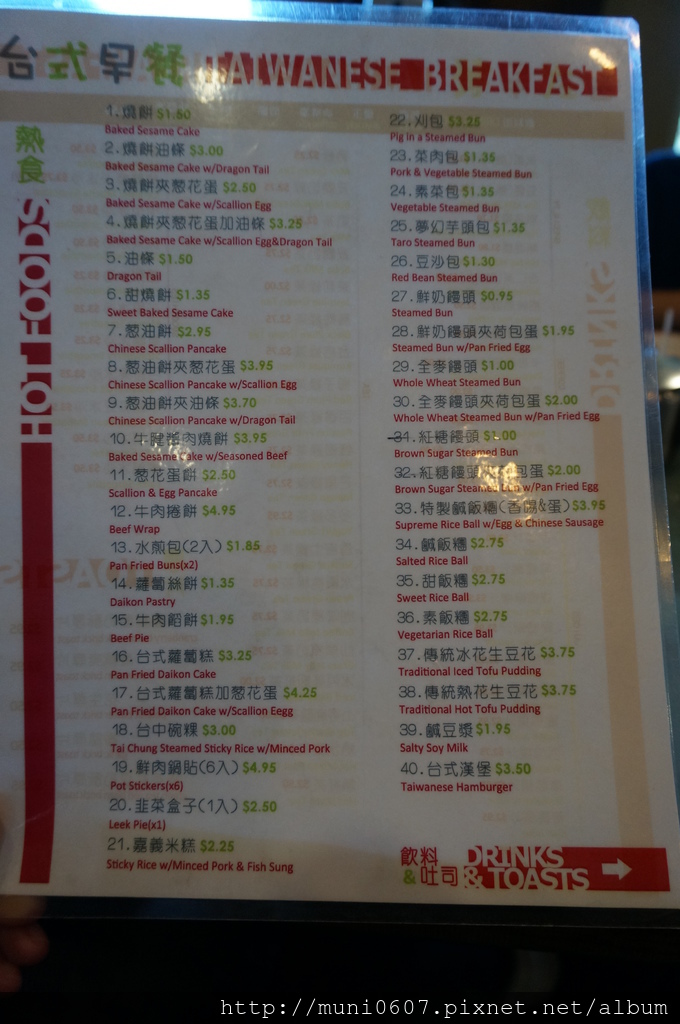 台式早餐 TAIWANESE BREAKFAST
熱食 HOT FOODS
1.燒餅 $1.50
Baked Sesame Cake
2.燒餅油條 $3.00
Baked Sesame Cake w/Dragon Tail
3.燒餅夾蔥花蛋 $2.50
Baked Sesame Cake w/Scallion Egg
4.燒餅夾蔥花蛋加油條 $3.25
Baked Sesame Cake w/Scallion Egg&Dragon Tail
5.油條 $1.50
Dragon Tail
6.甜燒餅 $1.35
Sweet Baked Sesame Cake
7.蔥油餅 $2.95
Chinese Scallion Pancake
8.蔥油餅夾蔥花蛋 $3.95
Chinese Scallion Pancake w/Scallion Egg
9.蔥油餅夾油條 $3.70
Chinese Scallion Pancake w/Dragon Tail
10.牛腱醬肉燒餅 $3.95
Baked Sesame Cake w/Seasoned Beef
11.蔥花蛋餅 $2.50
Scallion & Egg Pancake
12.牛肉捲餅 $4.95
Beef Wrap
13.水煎包(2入) $1.85
Pan Fried Buns(x2)
14.蘿蔔絲餅 $1.35
Daikon Pastry
15.牛肉餡餅 $1.95
Beef Pie
16.台式蘿蔔糕 $3.25
Pan Fried Daikon Cake
17.台式蘿蔔糕加蔥花蛋 $4.25
Pan Fried Daikon Cake w/Scallion Eegg
18.台中碗粿 $3.00
Tai Chung Steamed Sticky Rice w/Minced Pork
19.鮮肉鍋貼(6入) $4.95
Pot Stickers(x6)
20.韭菜盒子(1入) $2.50
Leek Pie(x1)
21.嘉義米糕 $2.25
Sticky Rice w/Minced Pork & Fish Sung
22.刈包 $3.25
Pig in a Steamed Bun
23.菜肉包 $1.35
Pork & Vegetable Steamed Bun
24.素菜包 $1.35
Vegetable Steamed Bun
25.夢幻芋頭包 $1.35
Taro Steamed Bun
26.豆沙包 $1.30
Red Bean Steamed Bun
27.鮮奶饅頭 $0.95
Steamed Bun
28.鮮奶饅頭夾荷包蛋 $1.95
Steamed Bun w/Pan Fried Egg
29.全麥饅頭 $1.00
Whole Wheat Steamed Bun
30.全麥饅頭夾荷包蛋 $2.00
Whole Wheat Steamed Bun w/Pan Fried Egg
31.紅糖饅頭 $1.00
Brown Sugar Steamed Bun
32.紅糖饅頭夾荷包蛋 $2.00
Brown Sugar Steamed Bun w/Pan Fried Egg
33.特製鹹飯糰(香腸&蛋) $3.95
Supreme Rice Ball w/Egg & Chinese Sausage
34.鹹飯糰 $2.75
Salted Rice Ball
35.甜飯糰 $2.75
Sweet Rice Ball
36.素飯糰 $2.75
Vegetarian Rice Ball
37.傳統冰花生豆花 $3.75
Traditional Iced Tofu Pudding
38.傳統熱花生豆花 $3.75
Traditional Hot Tofu Pudding
39.鹹豆漿 $1.95
Salty Soy Milk
40.台式漢堡 $3.50
Taiwanese Hamburger
飲料 DRINKS
&吐司 & TOASTS
http://muni0607.pixnet.net/album